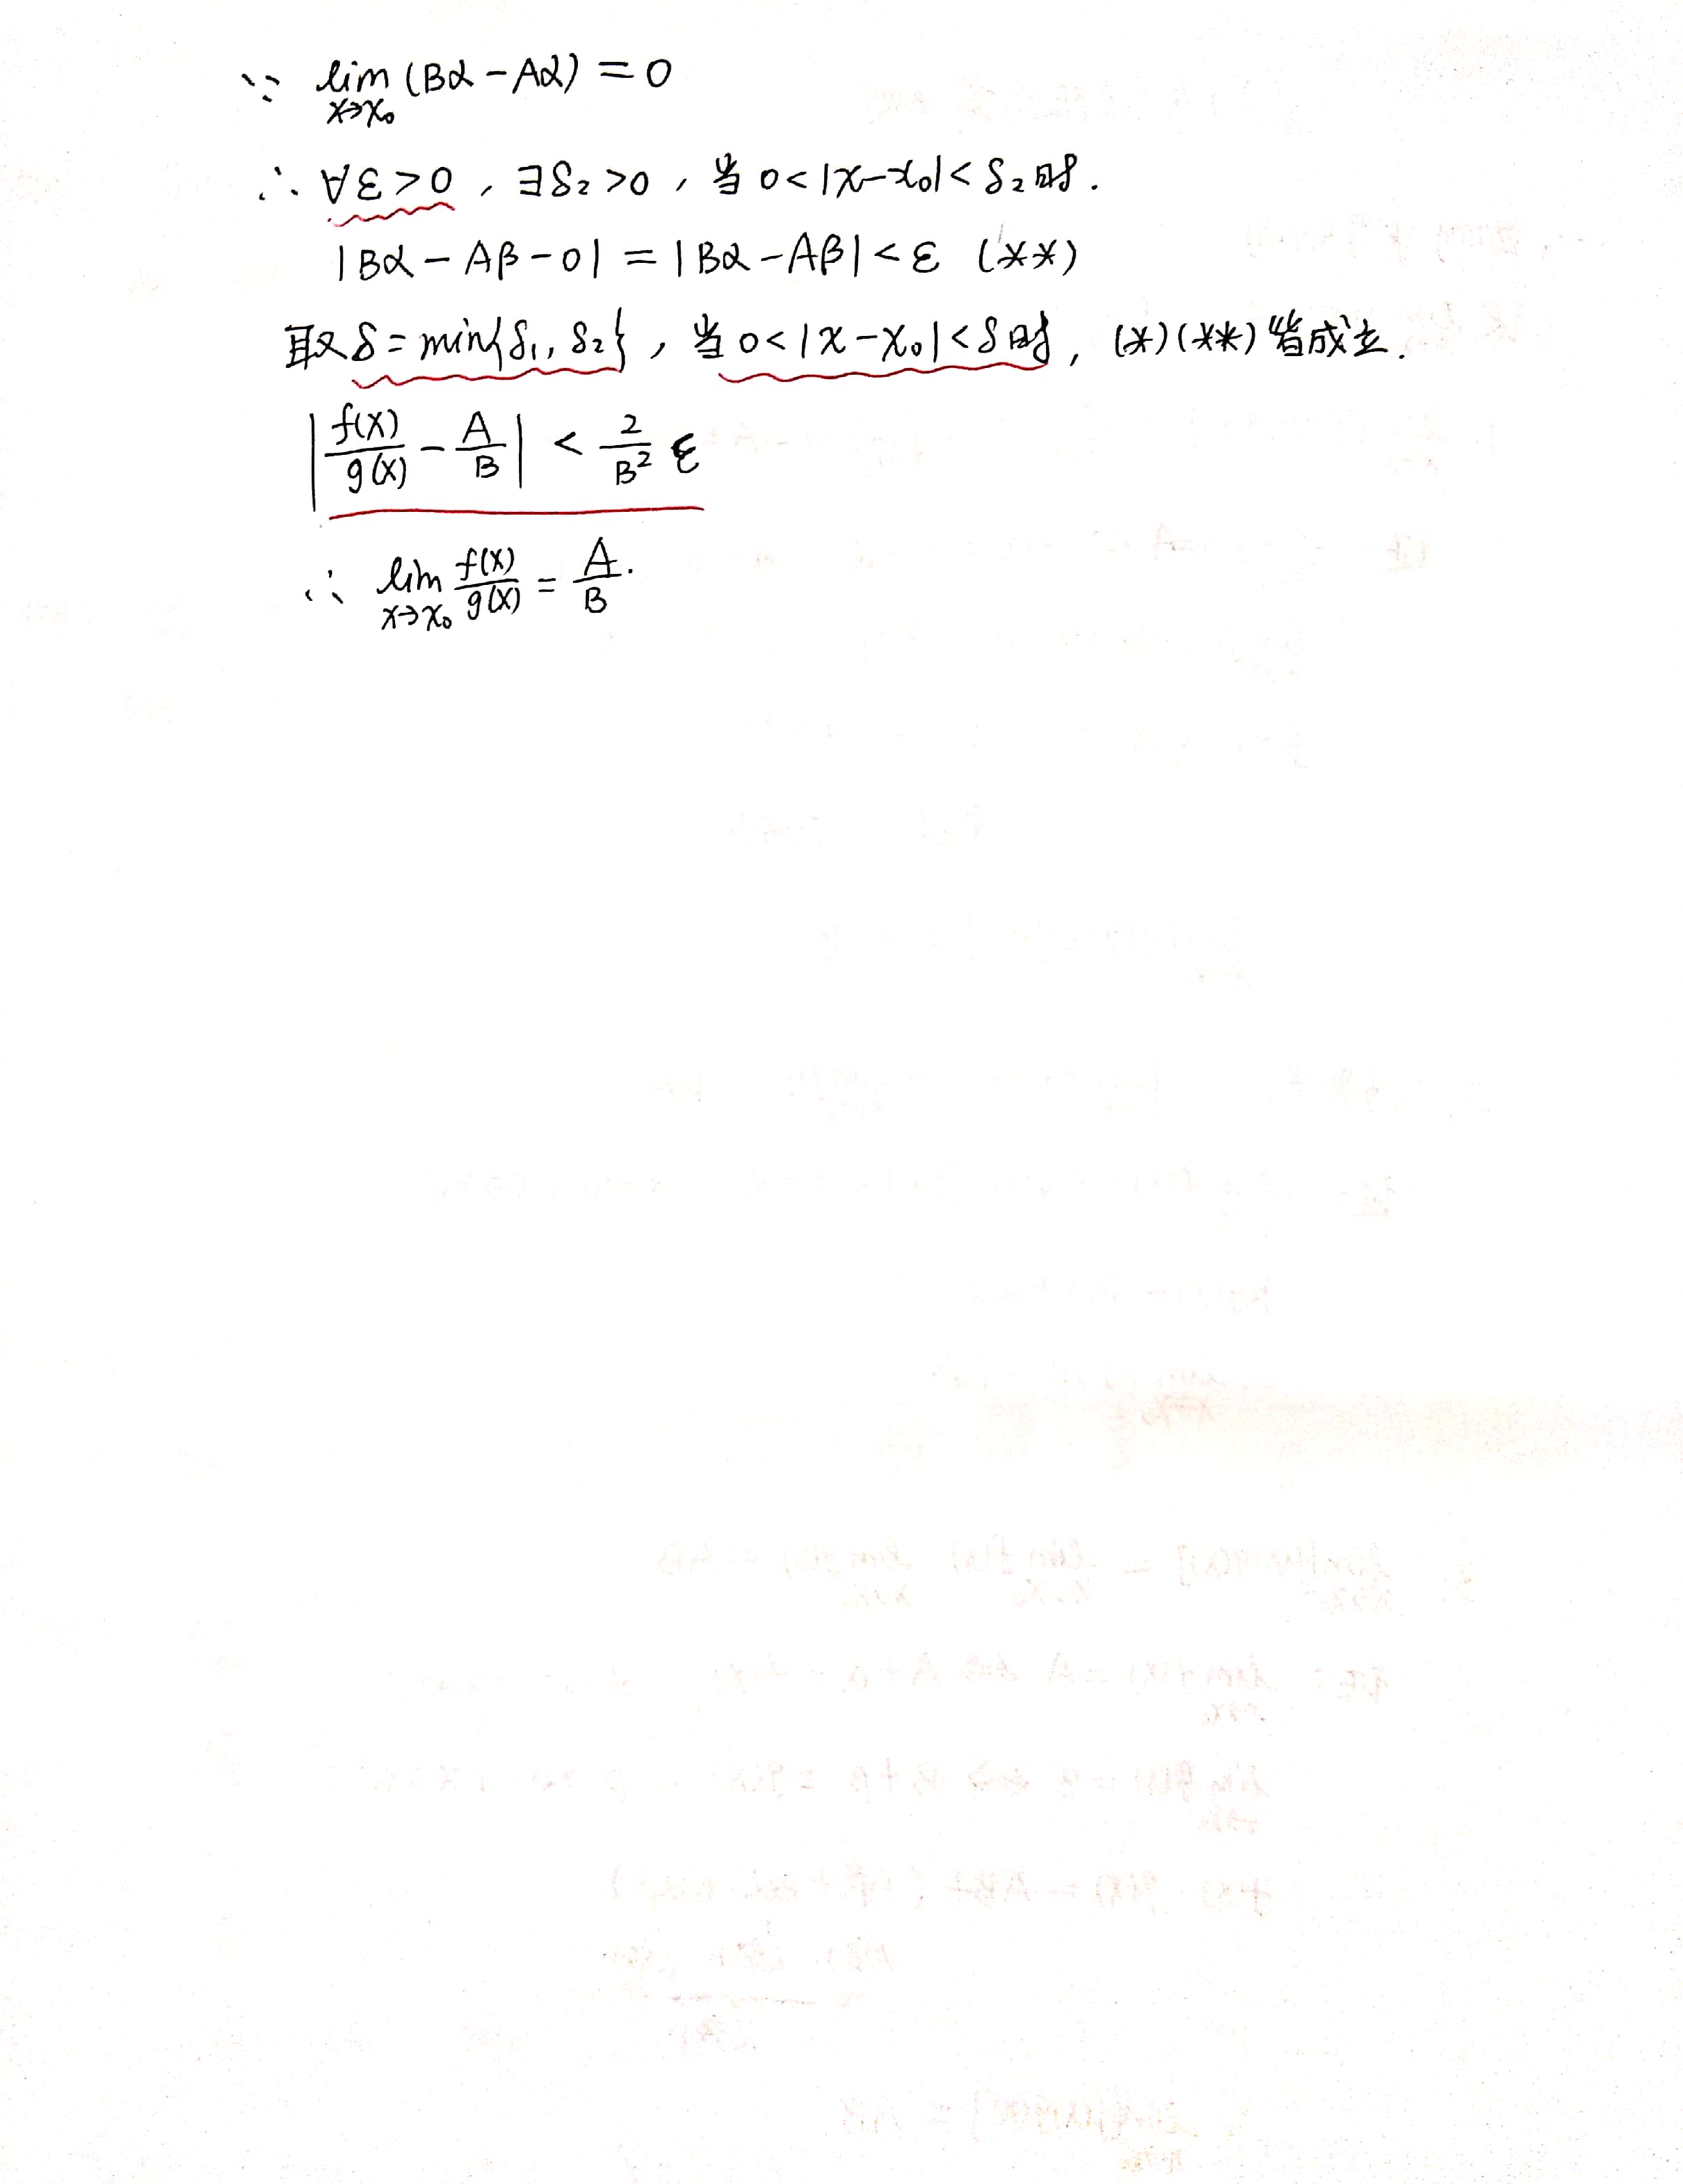 ∵ lim (Bα - Aα) = 0
x→x₀
∴ ∀ε>0, ∃δ₂>0, 当 0<|x-x₀|<δ₂时.
|Bα - Aβ - 0| = |Bα - Aβ| < ε (**)
取δ = min{δ₁, δ₂}, 当 0<|x-x₀|<δ时, (*)(**)皆成立.
|f(x)/g(x) - A/B| < 2/B² ε
∴ lim f(x)/g(x) = A/B.
x→x₀